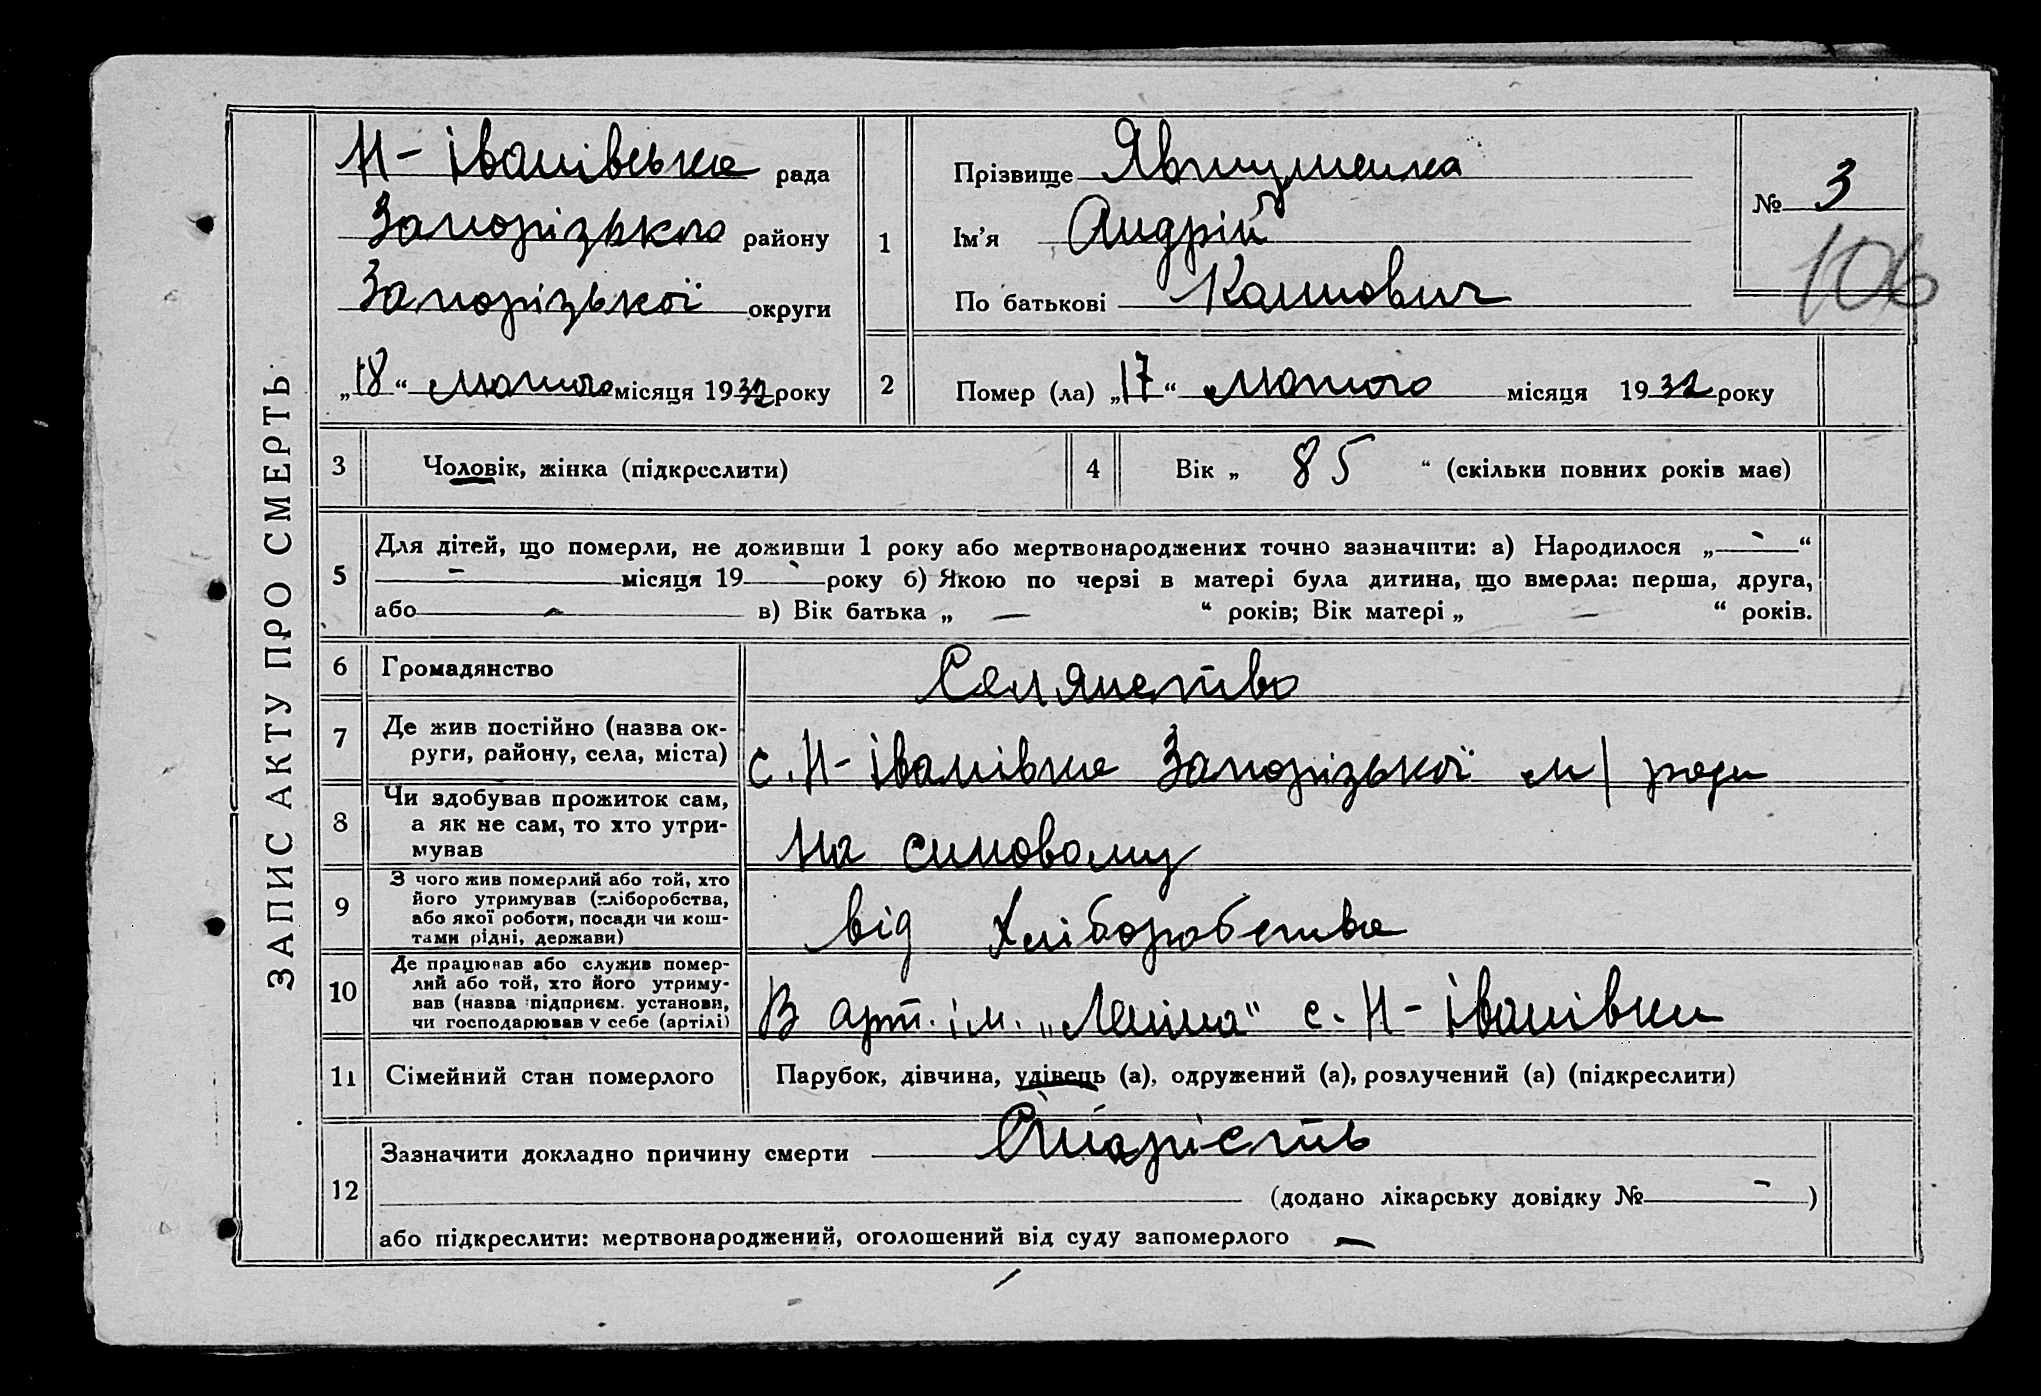 ЗАПИС АКТУ ПРО СМЕРТЬ
Н-Іванівська рада
Запорізького району
Запорізької округи
„18“ лютого місяця 1932 року
1
Прізвище Явтушенко
Ім'я Андрій
По батькові
№ 3
106
2 Помер (ла) „17“ лютого місяця 1932 року
3 Чоловік, жінка (підкреслити)
4 Вік „ 85 “ (скільки повних років має)
5 Для дітей, що померли, не доживши 1 року або мертвонароджених точно зазначити: а) Народилося „ - “
- місяця 19 - року б) Якою по черзі в матері була дитина, що вмерла: перша, друга,
або - в) Вік батька „ — “ років; Вік матері „ — “ років.
6 Громадянство Селянство
7 Де жив постійно (назва ок-
руги, району, села, міста) с. Н-Іванівка Запорізької м/ради
8 Чи здобував прожиток сам,
а як не сам, то хто утри-
мував на синовому
9 З чого жив померлий або той, хто
його утримував (хліборобства,
або якої роботи, посади чи кош-
тами рідні, держави) від Хліборобства
10 Де працював або служив помер-
лий або той, хто його утриму-
вав (назва підприєм. установи,
чи господарював у себе (артілі) В арт. ім. „Леніна“ с. Н-Іванівки
11 Сімейний стан померлого Парубок, дівчина, удівець (а), одружений (а), розлучений (а) (підкреслити)
12 Зазначити докладно причину смерти Старість
(додано лікарську довідку № - )
або підкреслити: мертвонароджений, оголошений від суду запомерлого —